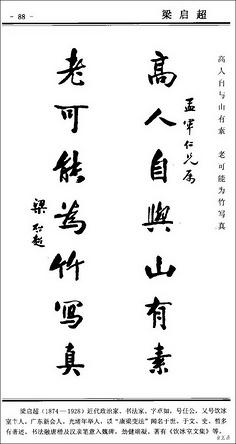 - 88 -
梁启超
高人自与山有素　老可能为竹写真
孟军仁兄属
高人自與山有素
老可能為竹写真
梁启超
梁启超（1874—1928）近代政治家、书法家，字卓如，号任公，又号饮冰
室主人，广东新会人，光绪年举人，以“康梁变法”闻名于世，于文、史、哲多
有著述，书法融唐楷及汉隶笔意入魏碑，劲健端凝，著有《饮冰室文集》等。